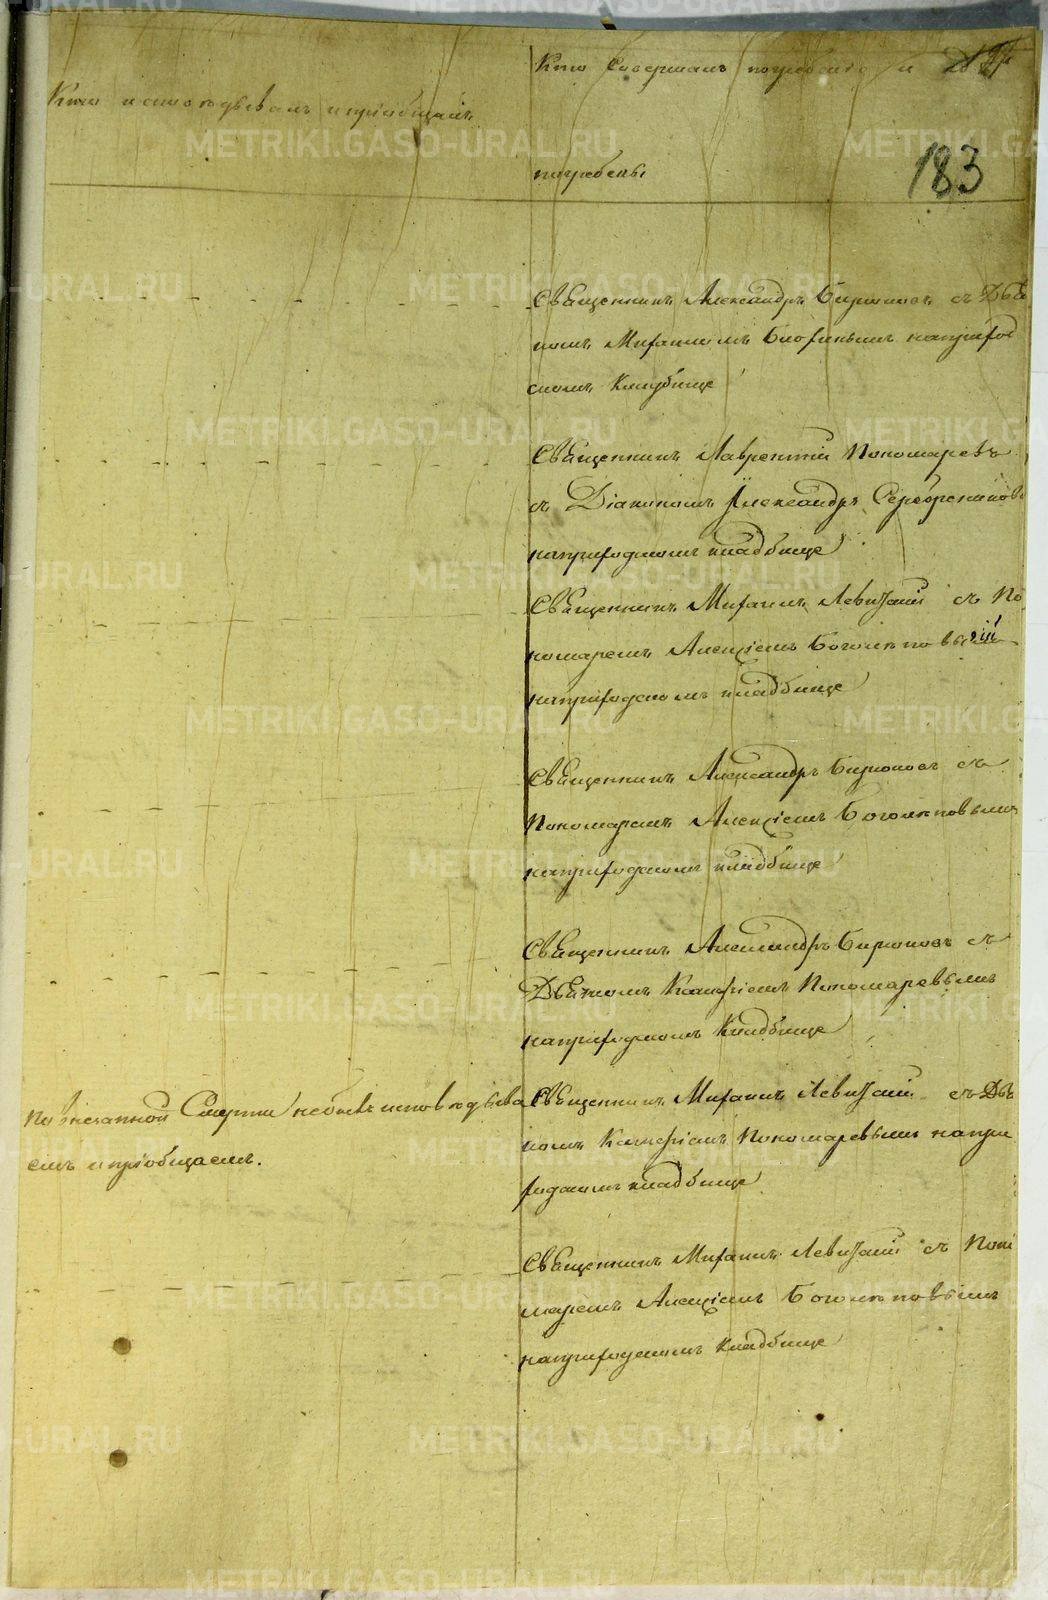 Кто исповѣдывалъ и пріобщалъ
Кто Совершалъ погребеніе и гдѣ
погребены
183
Священникъ Александръ Бирюковъ съ Дьяч
комъ Михаиломъ наприход
скомъ Кладбище
Священникъ Лаврентій Пономаревъ
съ Діакономъ Александръ Серебрениковъ
наприходскомъ кладбище
Священникъ Михаилъ Левицкій съ По
номаремъ Алексіемъ Боголѣповымъ
наприходскомъ кладбище
Священникъ Александръ Бирюковъ съ
Пономаремъ Алексіемъ Боголѣповымъ
наприходскомъ кладбище
Священникъ Александръ Бирюковъ съ
Дьячкомъ Пономаревымъ
наприходскомъ Кладбище
По внезапной Смерти небылъ исповѣдыва
емъ и пріобщаемъ.
Священникъ Михаилъ Левицкій съ Дьяч
комъ Пономаревымъ напри
ходскомъ кладбище
Священникъ Михаилъ Левицкій съ Поно
маремъ Алексіемъ Боголѣповымъ
наприходскомъ Кладбище
METRIKI.GASO-URAL.RU